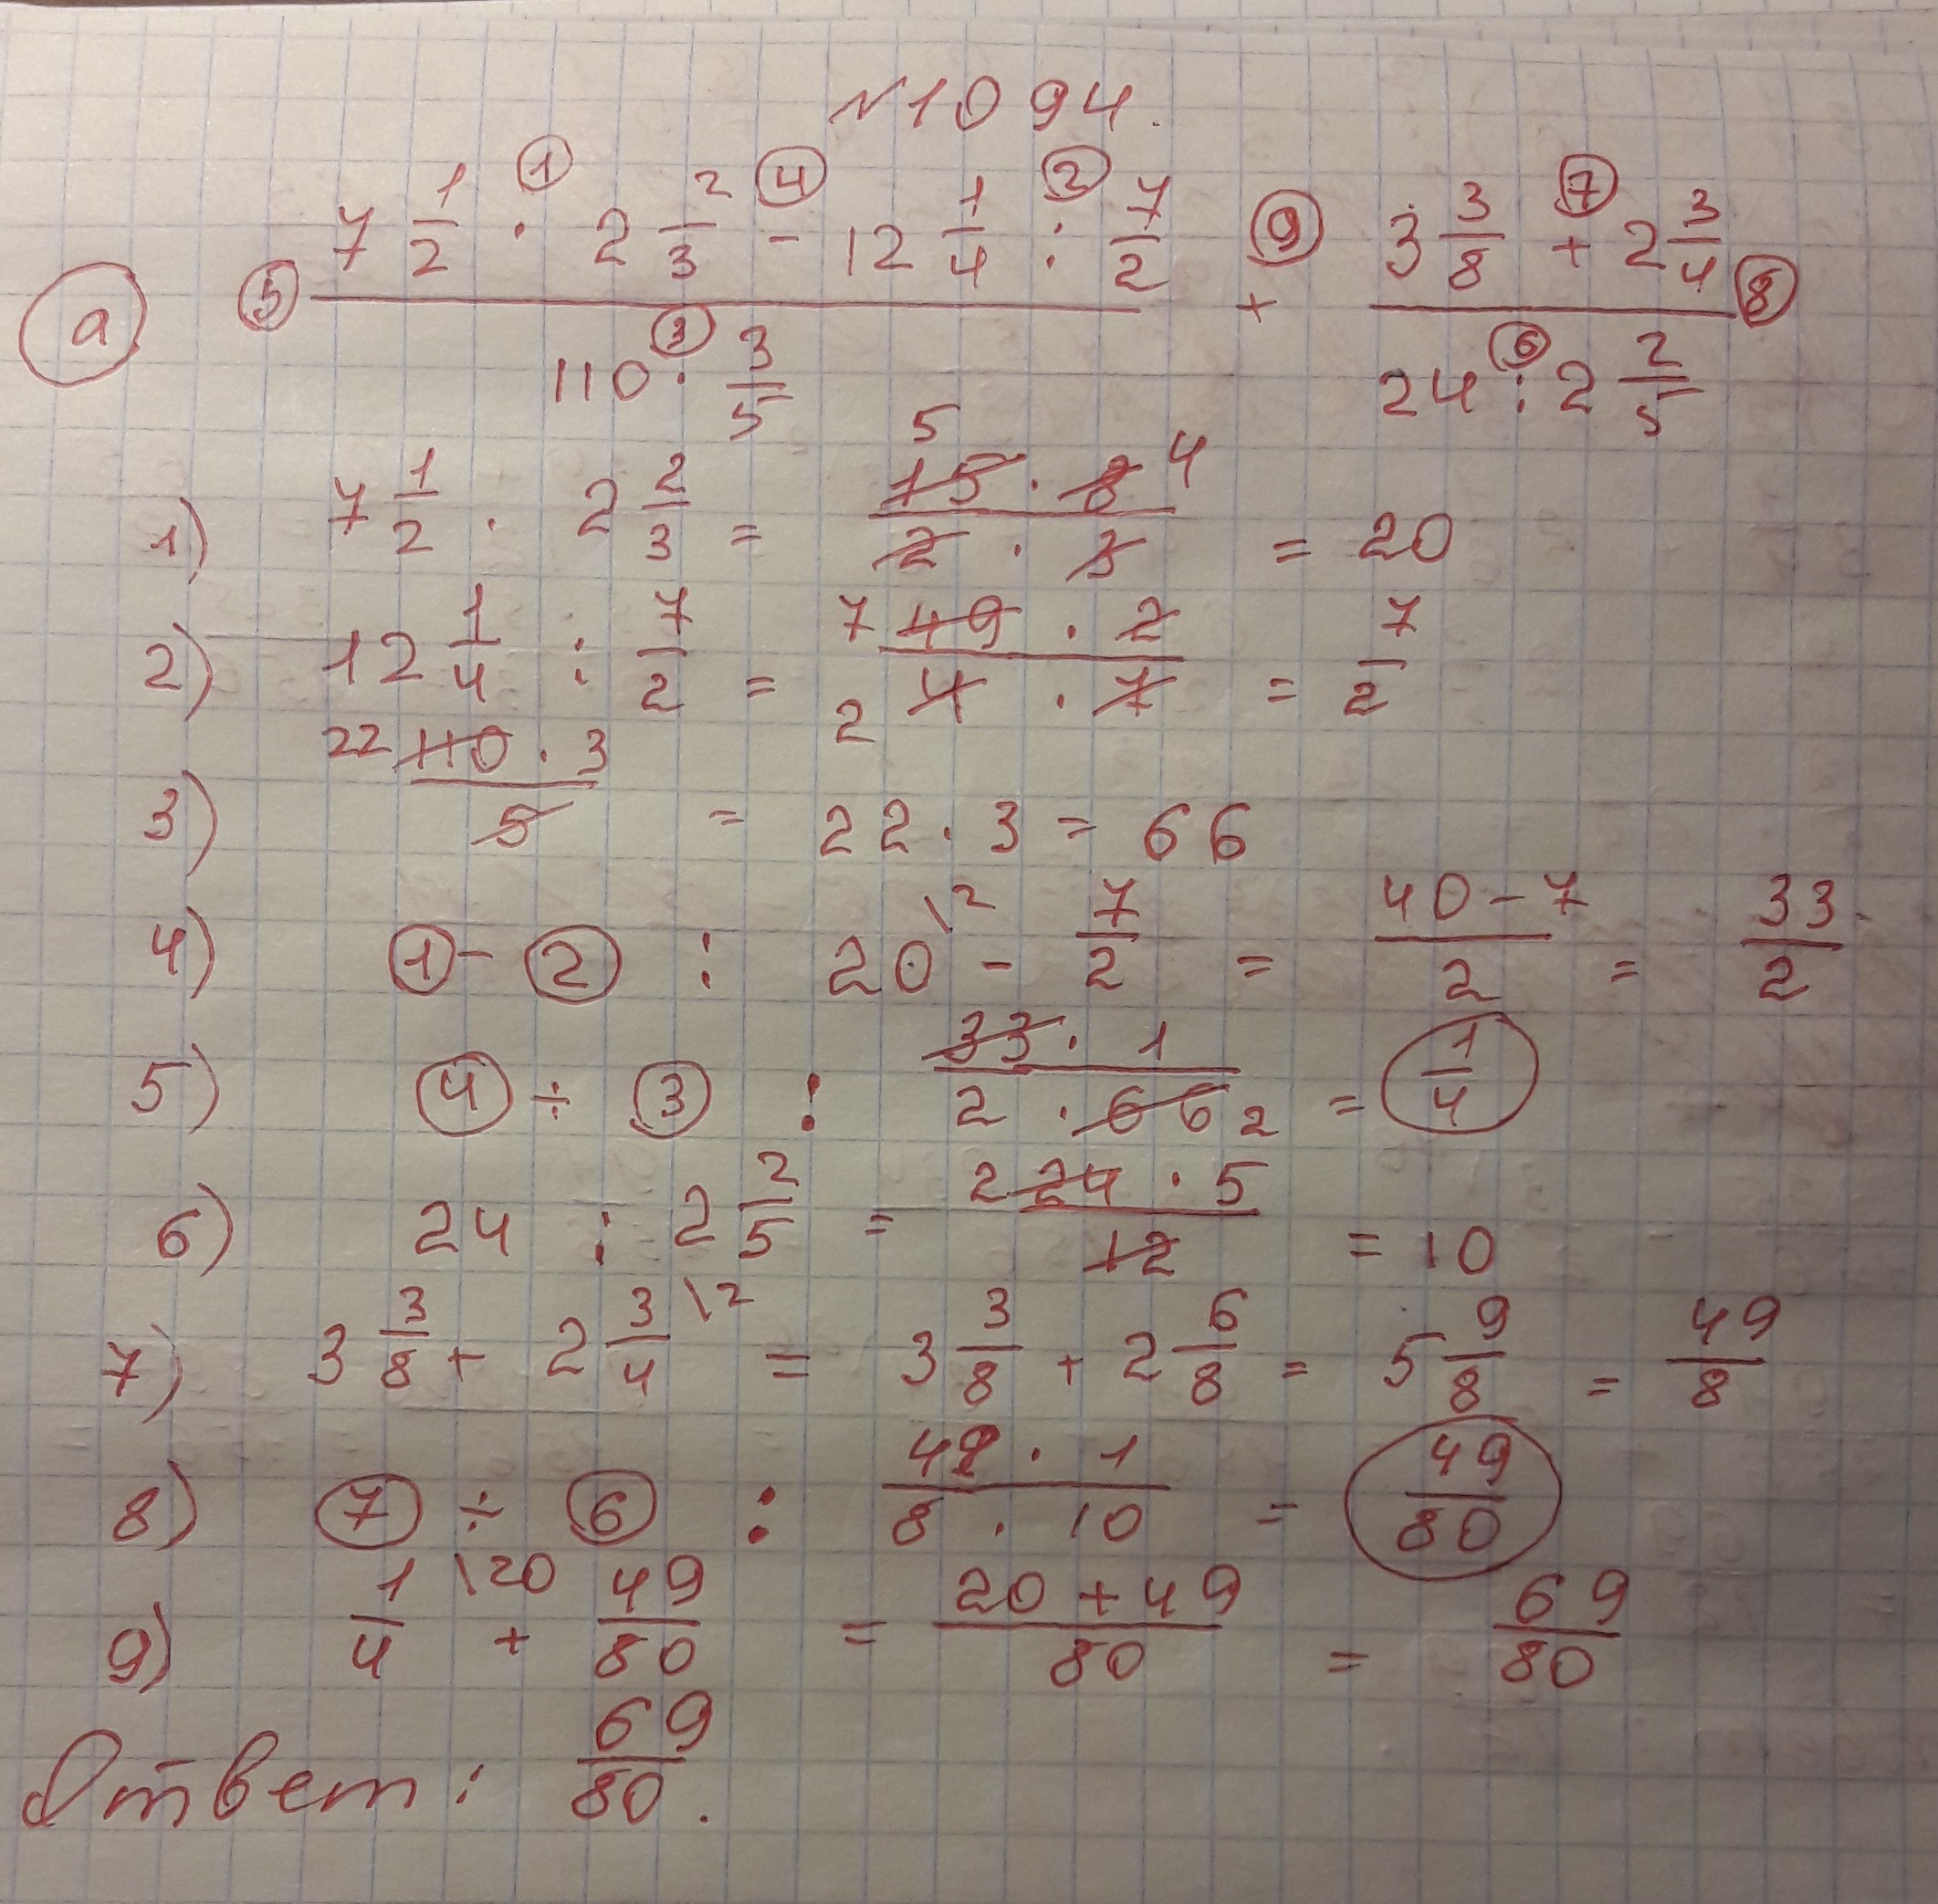 №1094.
а) ⑤ (7 1/2 ·① 2 2/3 -④ 12 1/4 :② 7/2) / (110 ·③ 3/5) +⑨ (3 3/8 +⑦ 2 3/4) / (24 :⑥ 2 2/5) ⑧
1) 7 1/2 · 2 2/3 = (15 5 · 8 4) / (2 · 3) = 20
2) 12 1/4 : 7/2 = (7 49 · 2) / (2 4 · 7) = 7/2
3) (22 110 · 3) / 5 = 22 · 3 = 66
4) ① - ② : 20 \2 - 7/2 = (40 - 7) / 2 = 33/2
5) ④ ÷ ③ : (33 · 1) / (2 · 66 2) = 1/4
6) 24 : 2 2/5 = (2 24 · 5) / 12 = 10
7) 3 3/8 + 2 3/4 \2 = 3 3/8 + 2 6/8 = 5 9/8 = 49/8
8) ⑦ ÷ ⑥ : (49 · 1) / (8 · 10) = 49/80
9) 1/4 \20 + 49/80 = (20 + 49) / 80 = 69/80
Ответ: 69/80.